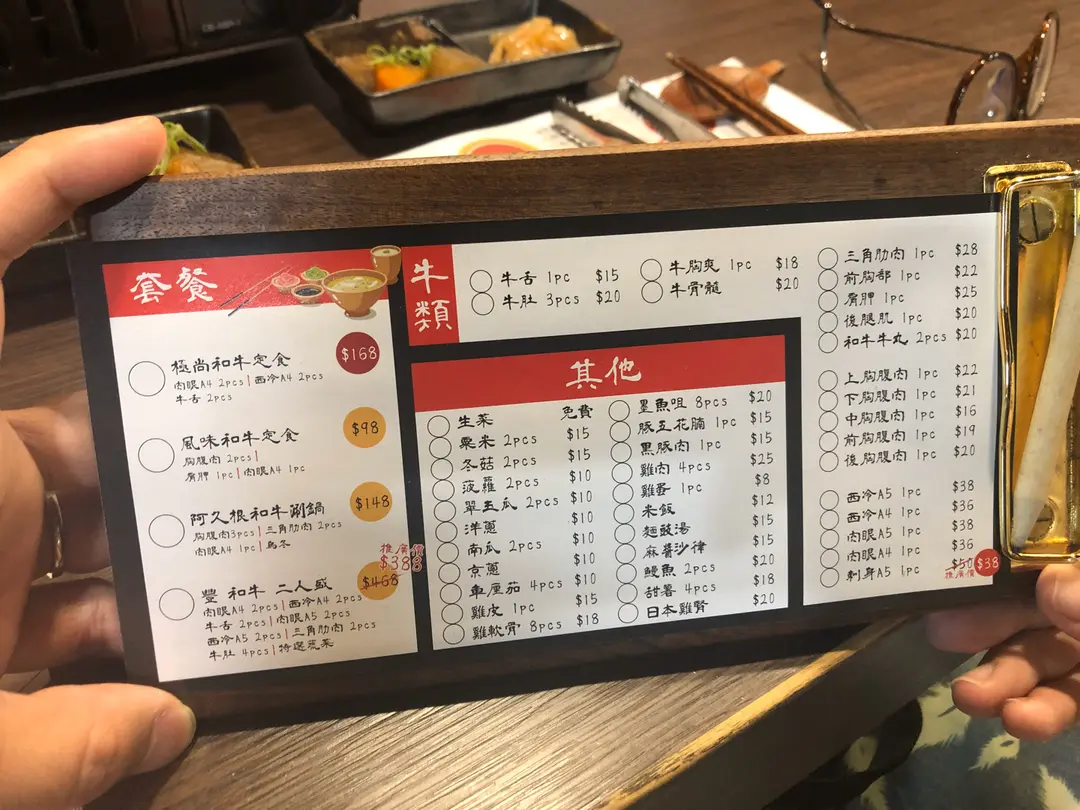 套餐
極尚和牛定食 $168
肉眼A4 2pcs | 西冷A4 2pcs
牛舌 2pcs
風味和牛定食 $98
胸腹肉 2pcs |
肩胛 1pc | 肉眼A4 1pc
阿久根和牛涮鍋 $148
胸腹肉3pcs | 三角肋肉 2pcs
肉眼A4 1pc | 烏冬
推廣價
$388
豐 和牛 二人盛 $468
肉眼A4 2pcs | 西冷A4 2pcs
牛舌 2pcs | 肉眼A5 2pcs
西冷A5 2pcs | 三角肋肉 2pcs
牛肚 4pcs | 特選蔬菜
牛類
牛舌 1pc $15
牛肚 3pcs $20
牛胸爽 1pc $18
牛骨髓 $20
三角肋肉 1pc $28
前胸部 1pc $22
肩胛 1pc $25
後腿肌 1pc $20
和牛牛丸 2pcs $20
上胸腹肉 1pc $22
下胸腹肉 1pc $21
中胸腹肉 1pc $16
前胸腹肉 1pc $19
後胸腹肉 1pc $20
西冷A5 1pc $38
西冷A4 1pc $36
肉眼A5 1pc $38
肉眼A4 1pc $36
刺身A5 1pc $50 推廣價 $38
其他
生菜 免費
粟米 2pcs $15
冬菇 2pcs $15
菠蘿 2pcs $10
翠玉瓜 2pcs $10
洋蔥 $10
南瓜 2pcs $10
京蔥 $10
車厘茄 4pcs $10
雞皮 1pc $15
雞軟骨 8pcs $18
墨魚咀 8pcs $20
豚五花腩 1pc $15
黑豚肉 1pc $15
雞肉 4pcs $25
雞蛋 1pc $8
米飯 $12
麵豉湯 $15
麻醬沙律 $15
鰻魚 2pcs $20
甜薯 4pcs $18
日本雞腎 $20